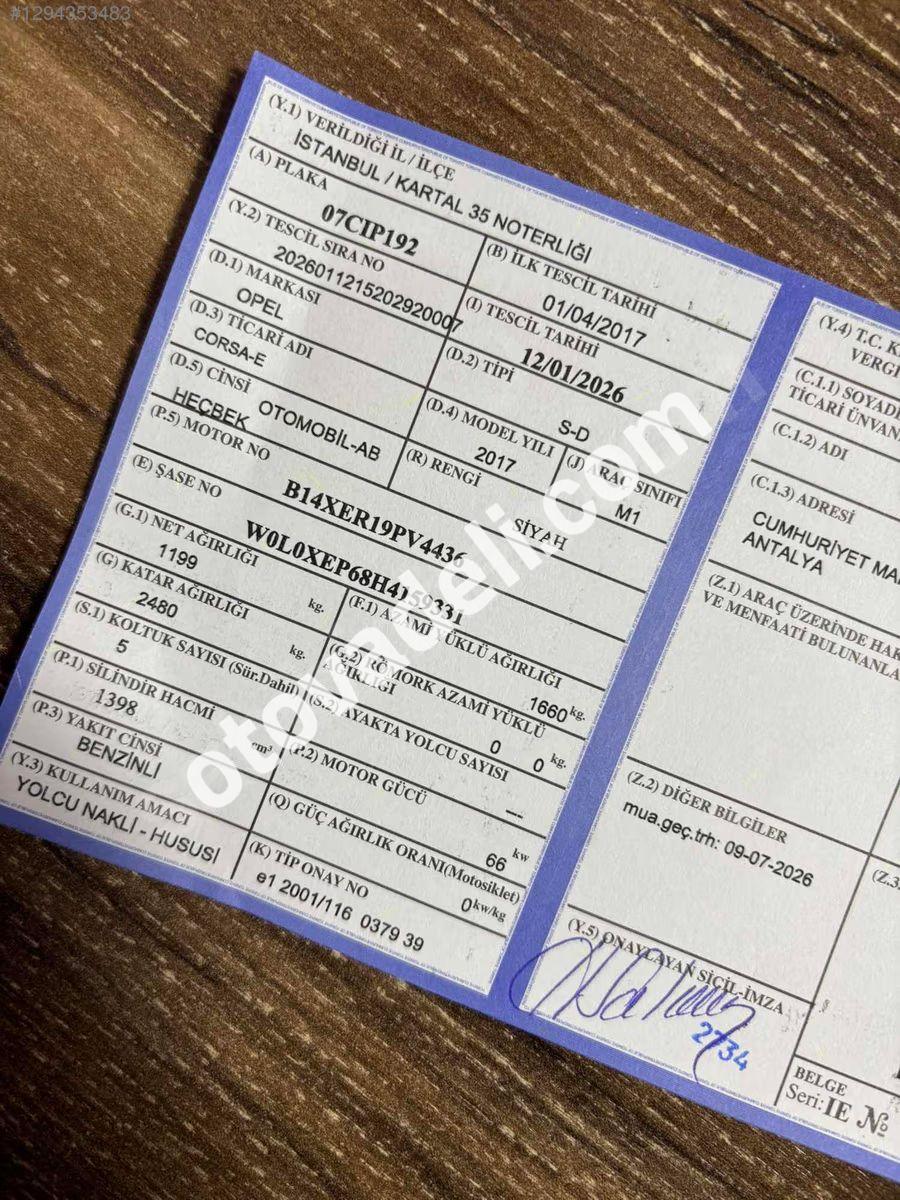 #1294353483
(Y.1) VERİLDİĞİ İL / İLÇE
İSTANBUL / KARTAL 35 NOTERLİĞİ
(A) PLAKA
07CIP192
(B) İLK TESCİL TARİHİ
01/04/2017
(Y.2) TESCİL SIRA NO
20260112152029200007
(I) TESCİL TARİHİ
12/01/2026
(D.1) MARKASI
OPEL
(D.2) TİPİ
S-D
(D.3) TİCARİ ADI
CORSA-E
(D.4) MODEL YILI
2017
(J) ARAÇ SINIFI
M1
(D.5) CİNSİ
OTOMOBİL-AB
HEÇBEK
(R) RENGİ
SİYAH
(P.5) MOTOR NO
B14XER19PV4436
(E) ŞASE NO
W0L0XEP68H4159331
(G.1) NET AĞIRLIĞI
1199 kg.
(F.1) AZAMİ YÜKLÜ AĞIRLIĞI
1660 kg.
(G) KATAR AĞIRLIĞI
2480 kg.
(G.2) RÖMORK AZAMİ YÜKLÜ
AĞIRLIĞI
0 kg.
(S.1) KOLTUK SAYISI (Sür.Dahil)
5
(S.2) AYAKTA YOLCU SAYISI
0
(P.1) SİLİNDİR HACMİ
1398 cm³
(P.2) MOTOR GÜCÜ
66 kw
(P.3) YAKIT CİNSİ
BENZİNLİ
(Q) GÜÇ AĞIRLIK ORANI(Motosiklet)
0 kw/kg
(Y.3) KULLANIM AMACI
YOLCU NAKLİ - HUSUSİ
(K) TİP ONAY NO
e1 2001/116 0379 39
(Y.4) T.C. K
VERGİ
(C.1.1) SOYADI
TİCARİ ÜNVAN
(C.1.2) ADI
(C.1.3) ADRESİ
CUMHURİYET MA
ANTALYA
(Z.1) ARAÇ ÜZERİNDE HAK
VE MENFAATİ BULUNANLA
(Z.2) DİĞER BİLGİLER
mua.geç.trh: 09-07-2026
(Z.3)
(Y.5) ONAYLAYAN SİCİL-İMZA
2734
BELGE
Seri: IE №
otovadeli.com